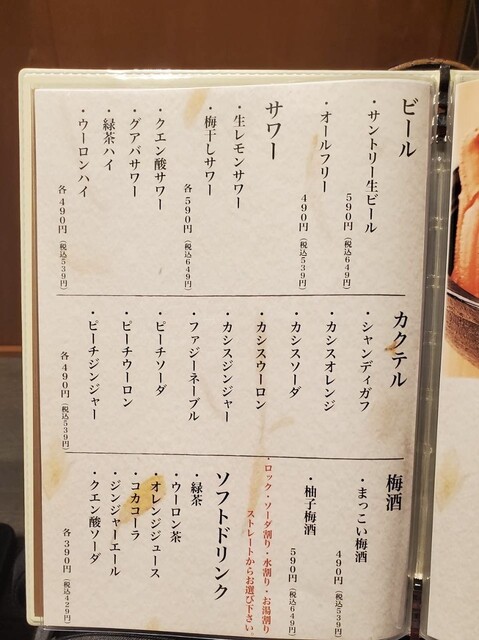 ビール
・サントリー生ビール
590円（税込649円）
・オールフリー
490円（税込539円）
サワー
・生レモンサワー
・梅干しサワー
各590円（税込649円）
・クエン酸サワー
・グアバサワー
・緑茶ハイ
・ウーロンハイ
各490円（税込539円）
カクテル
・シャンディガフ
・カシスオレンジ
・カシスソーダ
・カシスウーロン
・カシスジンジャー
・ファジーネーブル
・ピーチソーダ
・ピーチウーロン
・ピーチジンジャー
各490円（税込539円）
梅酒
・まっこい梅酒
490円（税込539円）
・柚子梅酒
590円（税込649円）
・ロック・ソーダ割り・水割り・お湯割り
ストレートからお選び下さい
ソフトドリンク
・緑茶
・ウーロン茶
・オレンジジュース
・コカコーラ
・ジンジャーエール
・クエン酸ソーダ
各390円（税込429円）